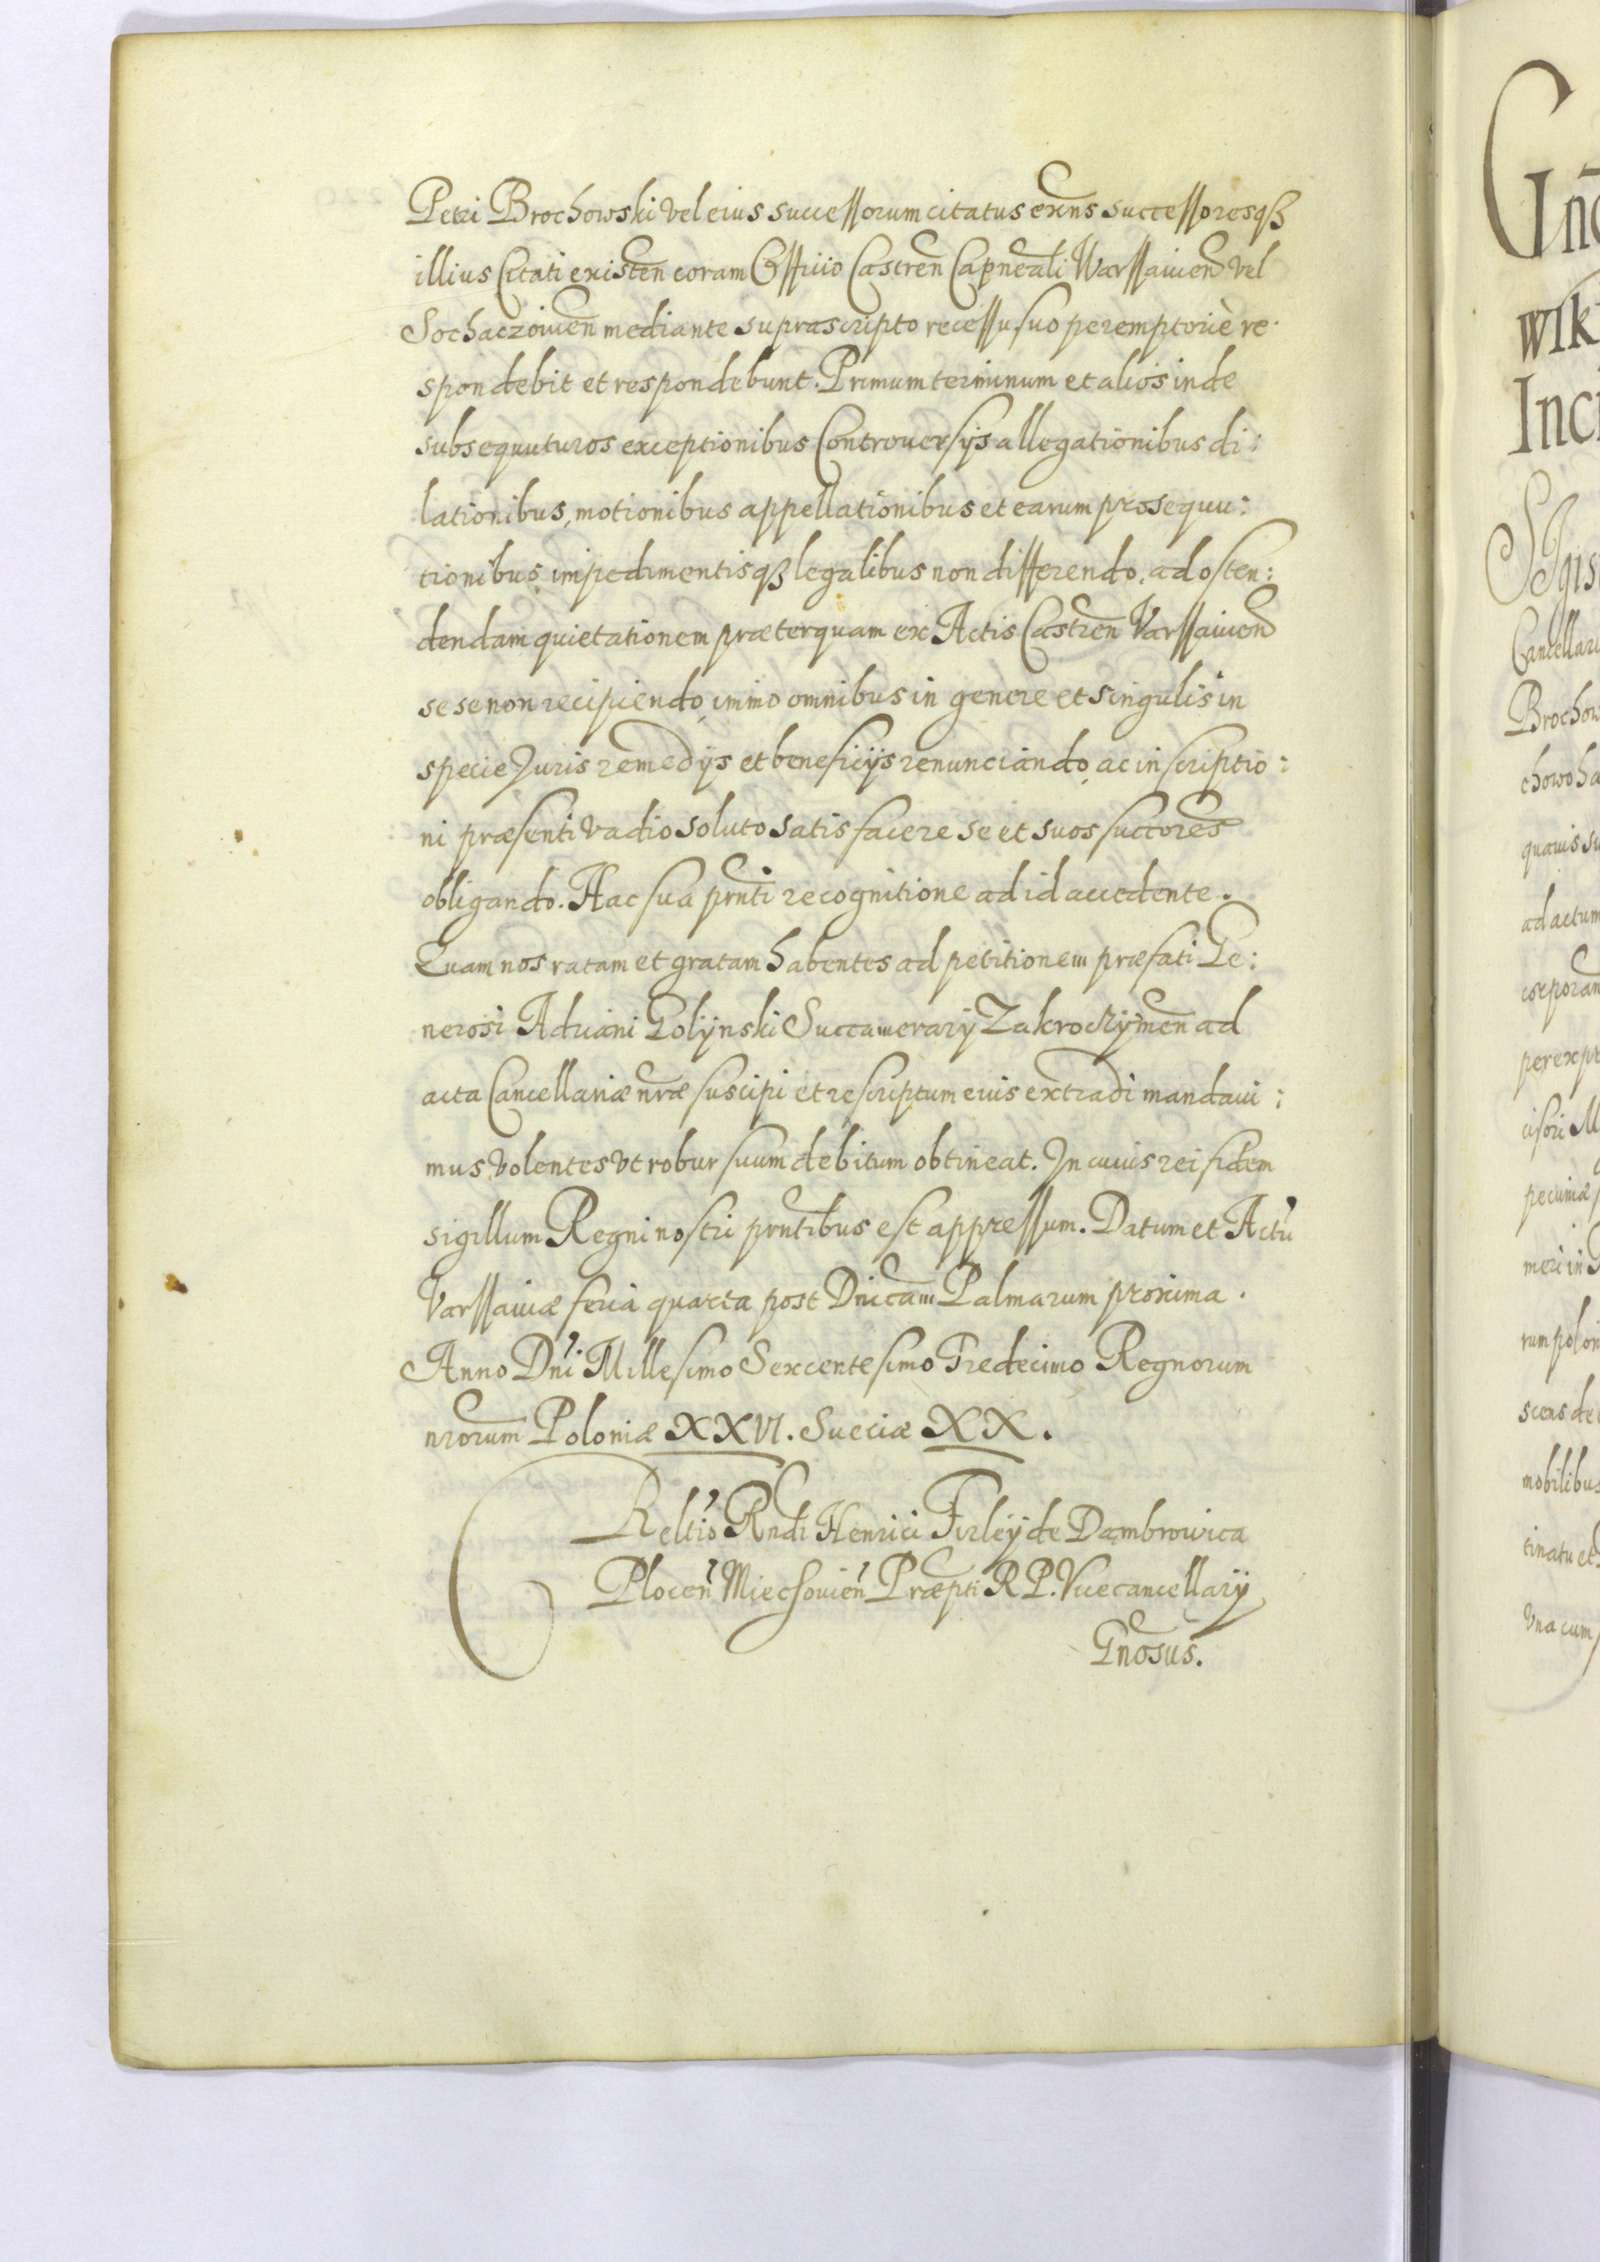 Petri Brochowski vel eius successorum citatus exns successoresqꝫ
illius Citati existen coram Officio Castren Capneali Warssauien vel
Sochaczouien mediante suprascripto recessu suo peremptoriè re-
spondebit et respondebunt. Primum terminum et alios inde
subsequuturos exceptionibus Controuersijs allegationibus di:
lationibus, motionibus appellationibus et earum prosequu:
tionibus impedimentisqꝫ legalibus non differendo, ad osten:
dendam quietationem præterquam ex Actis Castren Varssauien
sese non recipiendo, immo omnibus in genere et singulis in
specie Juris remedijs et beneficijs renunciando, ac inscriptio:
ni præsenti vadio soluto satisfacere se et suos succores
obligando. Hac sua prnti recognitione ad id accedente.
Quam nos ratam et gratam habentes ad petitionem præfati Ge:
nerosi Adriani Golijnski Succamerarij Zakroczijmen ad
acta Cancellariæ nræ suscipi et rescriptum eius extradi mandaui:
mus, volentes vt robur suum debitum obtineat. In cuius rei fidem
sigillum Regni nostri prntibus est appressum. Datum et Actu
Varssauiæ feria quarta post Dnicam Palmarum proxima.
Anno Dni Millesimo Sexcentesimo Tredecimo Regnorum
nrorum Poloniæ XXVI. Sueciæ XX.
Reltio Rndi Henrici Firleij de Dambrowica
Plocen Miechouien Præpti R P. Vicecancellarij
Gnosus.
Gn
wik
Inci
Sigis
Cancellari
Brochow
chowo ha
quauis su
ad actum
corporan
per exp
cisori M
pecuniæ
meri in
rum polon
scens de
mobilibus
tinatu et
Vna cum